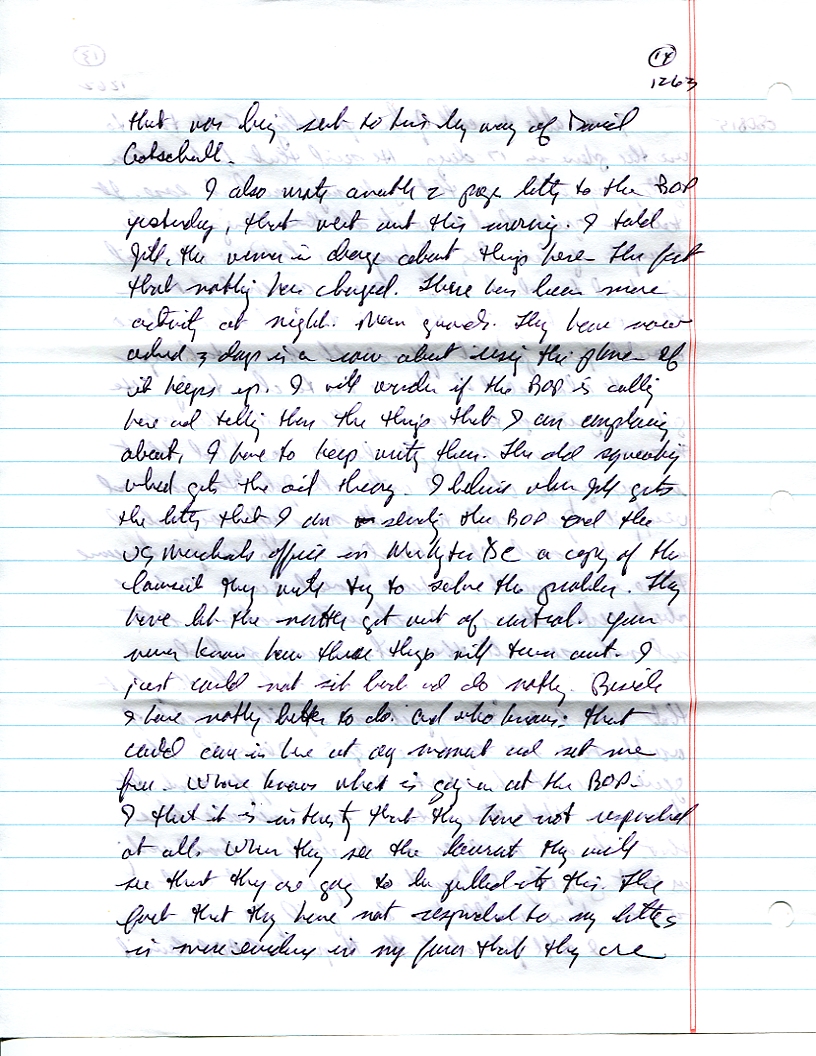 14
1263
that was being sent to him by way of David
Gotschall.
I also wrote another 2 page letter to the BOP
yesterday, that went out this morning. I told
Jill, the woman in charge about things here. The fact
that nothing has changed. There has been more
activity at night. Man guards. They have now
asked 3 days in a row about using the phone if
it keeps up. I will wonder if the BOP is calling
here and telling them the things that I am complaining
about, I have to keep writing them. The old squeaking
wheel gets the oil theory. I believe when Jill gets
the letter that I am sending the BOP and the
US Marshals office in Washington DC a copy of the
lawsuit they will try to solve the problem. They
have let the matter get out of control. You
never know how these things will turn out. I
just could not sit back and do nothing. Beside
I have nothing better to do. And who knows: that
could come in here at any moment and set me
free. Whose knows what is going on at the BOP.
I that it is interesting that they have not responded
at all. When they see the lawsuit they will
see that they are going to be pulled into this. The
fact that they have not responded to my letters
is more evidence in my favor that they are